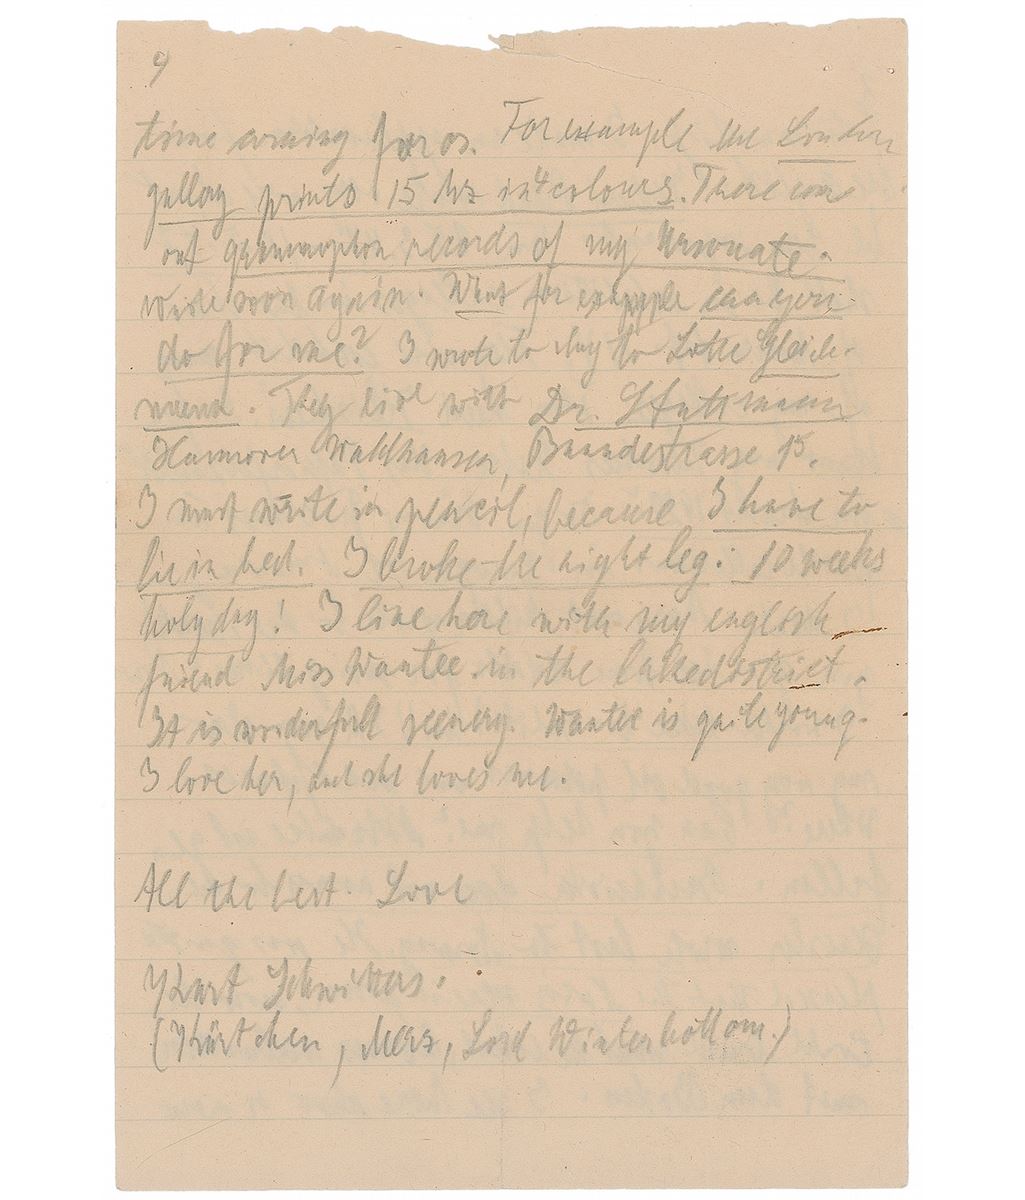 9
time coming for os. For example the London
gallery prints 15 Mz in 4 colours. There come
out gramophon records of my Ursonate.
Write soon again. What for example can you
do for me? I wrote to day to Lotte Gleich-
mann. They live with Dr.
Hannover Waldhausen, 15.
I must write in pencil, because I have to
lie in bed. I broke the right leg. 10 weeks
holyday! I live here with my english
friend Miss Wantee in the lakedistrict.
It is wonderfull scenery. Wantee is quite young.
I love her, and she loves me.
All the best. Love
Kurt Schwitters.
(Kürtchen, Merz, Lord Winterbottom.)